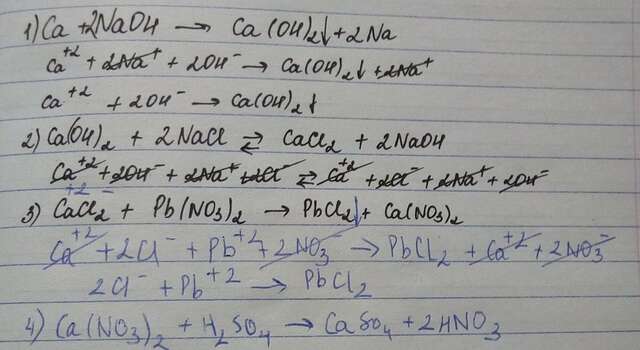 1) Ca + 2NaOH → Ca(OH)₂↓ + 2Na
Ca⁺² + 2Na⁺ + 2OH⁻ → Ca(OH)₂↓ + 2Na⁺
Ca⁺² + 2OH⁻ → Ca(OH)₂↓
2) Ca(OH)₂ + 2NaCl ⇄ CaCl₂ + 2NaOH
Ca⁺² + 2OH⁻ + 2Na⁺ + 2Cl⁻ ⇄ Ca⁺² + 2Cl⁻ + 2Na⁺ + 2OH⁻
+2 −
3) CaCl₂ + Pb(NO₃)₂ → PbCl₂↓ + Ca(NO₃)₂
Ca⁺² + 2Cl⁻ + Pb⁺² + 2NO₃⁻ → PbCl₂ + Ca⁺² + 2NO₃⁻
2Cl⁻ + Pb⁺² → PbCl₂
4) Ca(NO₃)₂ + H₂SO₄ → CaSO₄ + 2HNO₃